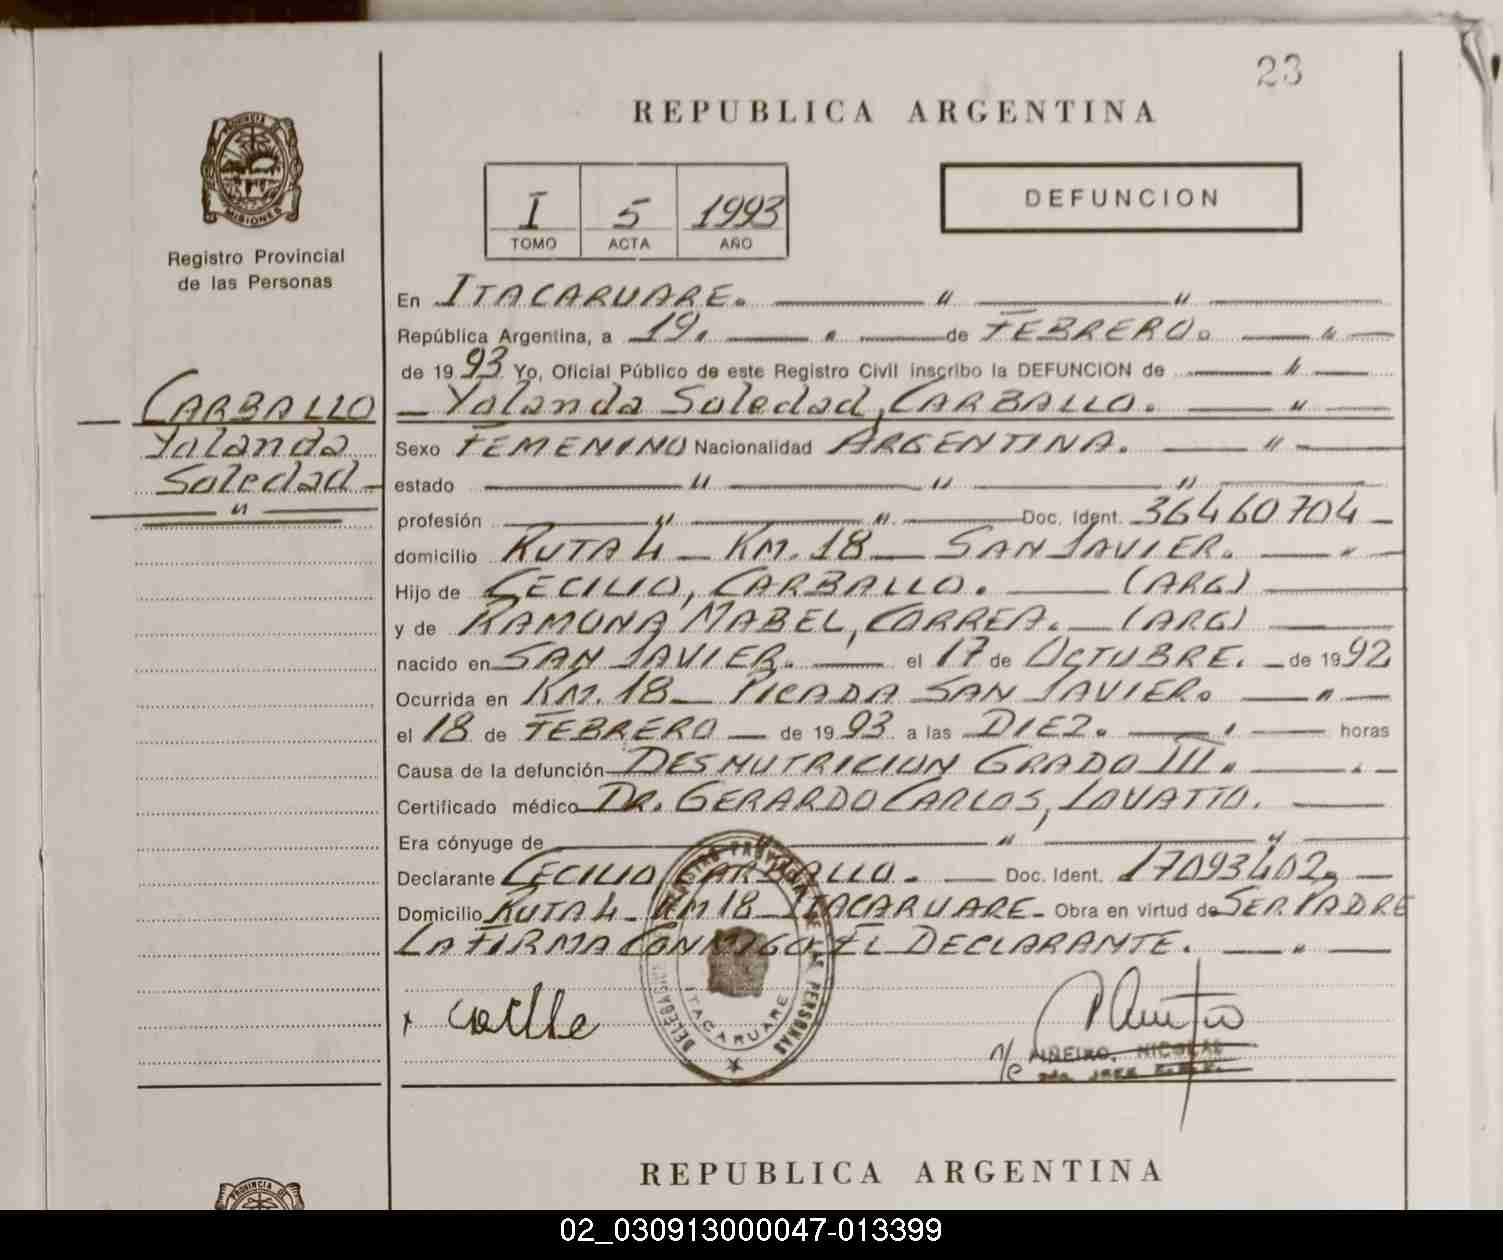 23
REPUBLICA ARGENTINA
PROVINCIA DE
MISIONES
Registro Provincial
de las Personas
I 5 1993
TOMO ACTA AÑO
DEFUNCION
En ITACARUARE. " "
República Argentina, a 19. " de FEBRERO. "
de 1993 Yo, Oficial Público de este Registro Civil inscribo la DEFUNCION de "
Yolanda Soledad, CARBALLO. "
CARBALLO
Yolanda
Soledad
"
Sexo FEMENINO Nacionalidad ARGENTINA. "
estado " " "
profesión " " Doc. Ident. 36460704
domicilio RUTA 4 - KM. 18 - SAN JAVIER. "
Hijo de CECILIO, CARBALLO. (ARG)
y de RAMONA MABEL, CORREA. (ARG)
nacido en SAN JAVIER. el 17 de OCTUBRE. de 1992
Ocurrida en KM. 18 - PICADA SAN JAVIER. "
el 18 de FEBRERO de 1993 a las DIEZ. " horas
Causa de la defunción DESNUTRICION GRADO III. "
Certificado médico DR. GERARDO CARLOS, LOVATTO.
Era cónyuge de " " "
Declarante CECILIO CARBALLO. Doc. Ident. 17093402
Domicilio RUTA 4 - KM 18 - ITACARUARE - Obra en virtud de SER PADRE
LA FIRMA CONMIGO EL DECLARANTE. "
DELEGACION
REGISTRO PROVINCIAL DE LAS PERSONAS
ITACARUARE
PIÑEIRO, NICOLAS
REPUBLICA ARGENTINA
PROVINCIA DE
02_030913000047-013399